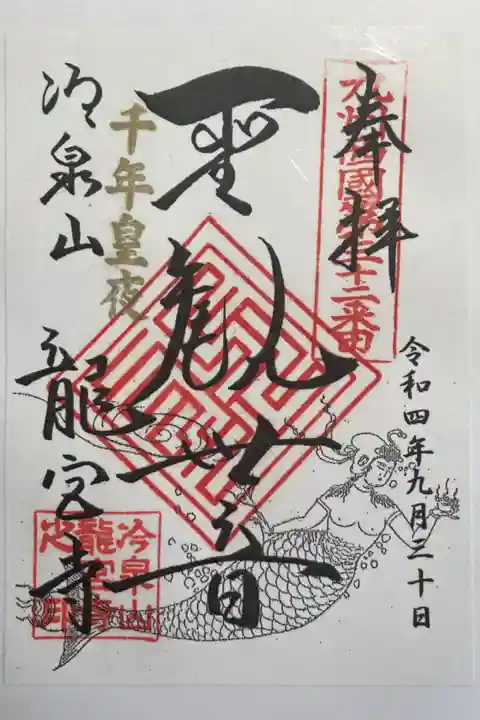 奉拝
九州西國第三十二番
令和四年九月三十日
聖観世音
千年皇夜
冷泉山
龍宮寺
冷泉山
龍宮寺
之印